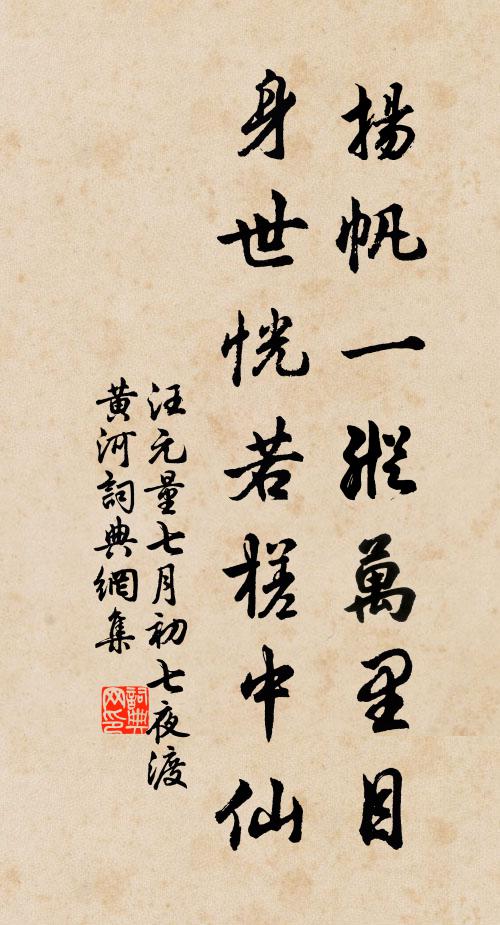 揚帆一縱萬里目
身世恍若槎中仙
汪元量七月初七夜渡
黃河詞典網集
詞典网印